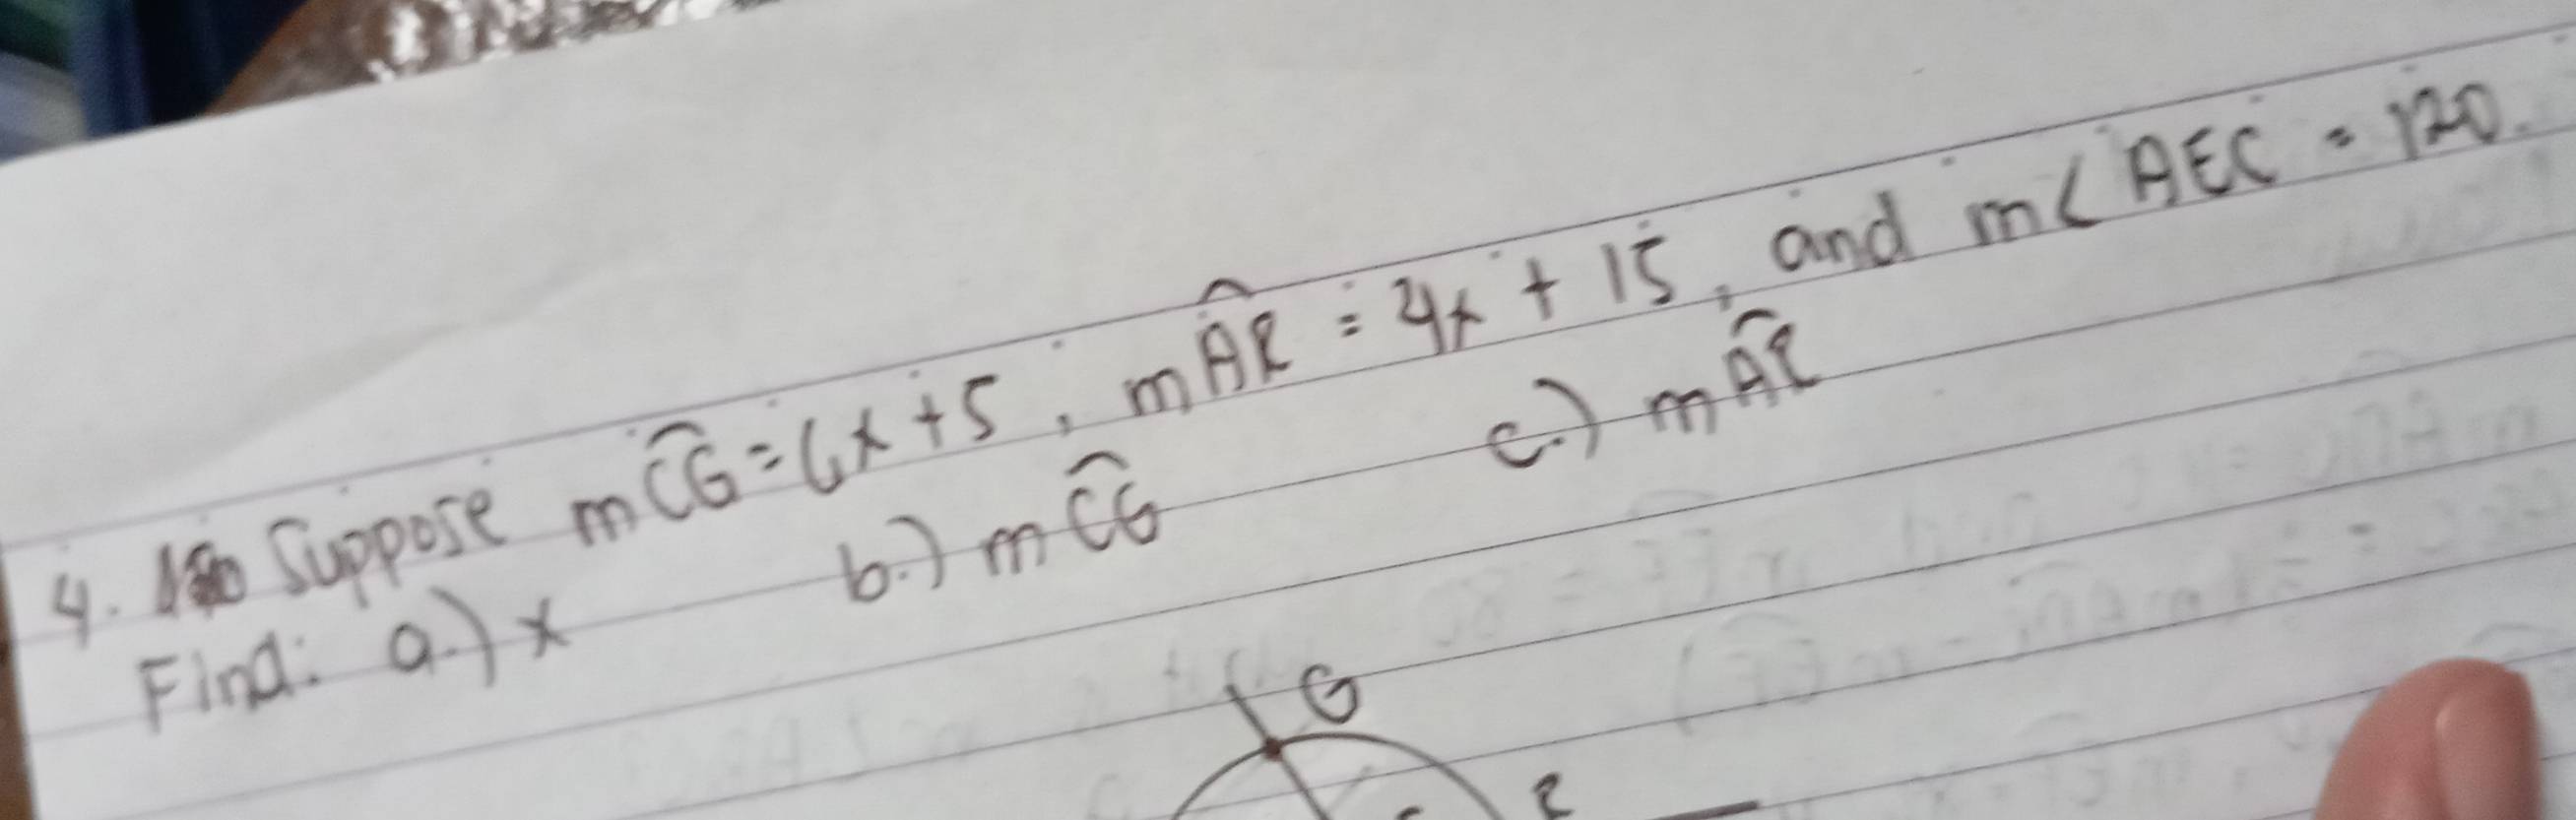 4. Suppose m͡CG = 6x + 5, m͡AR = 4x + 15, and m< AEC = 120.
Find: a.) x b.) m͡CG c.) m͡AR
G
R